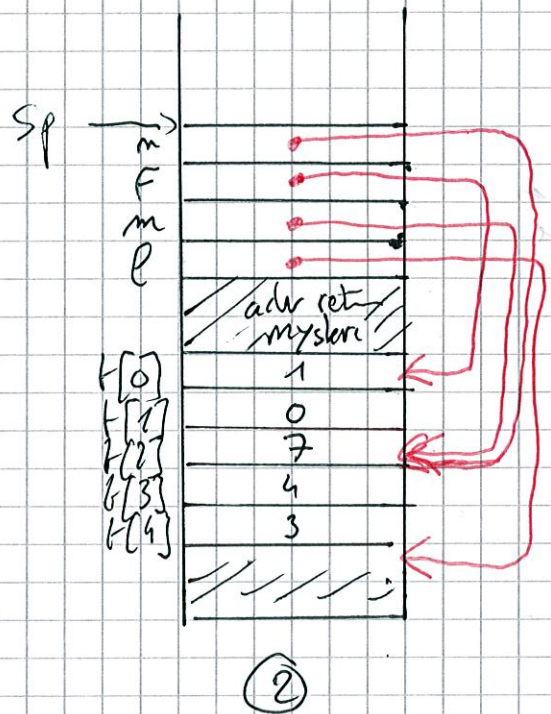 Sp
n
F
m
l
adr ret
t[0] 1
t[1] 0
t[2] 7
t[3] 4
t[4] 3
2